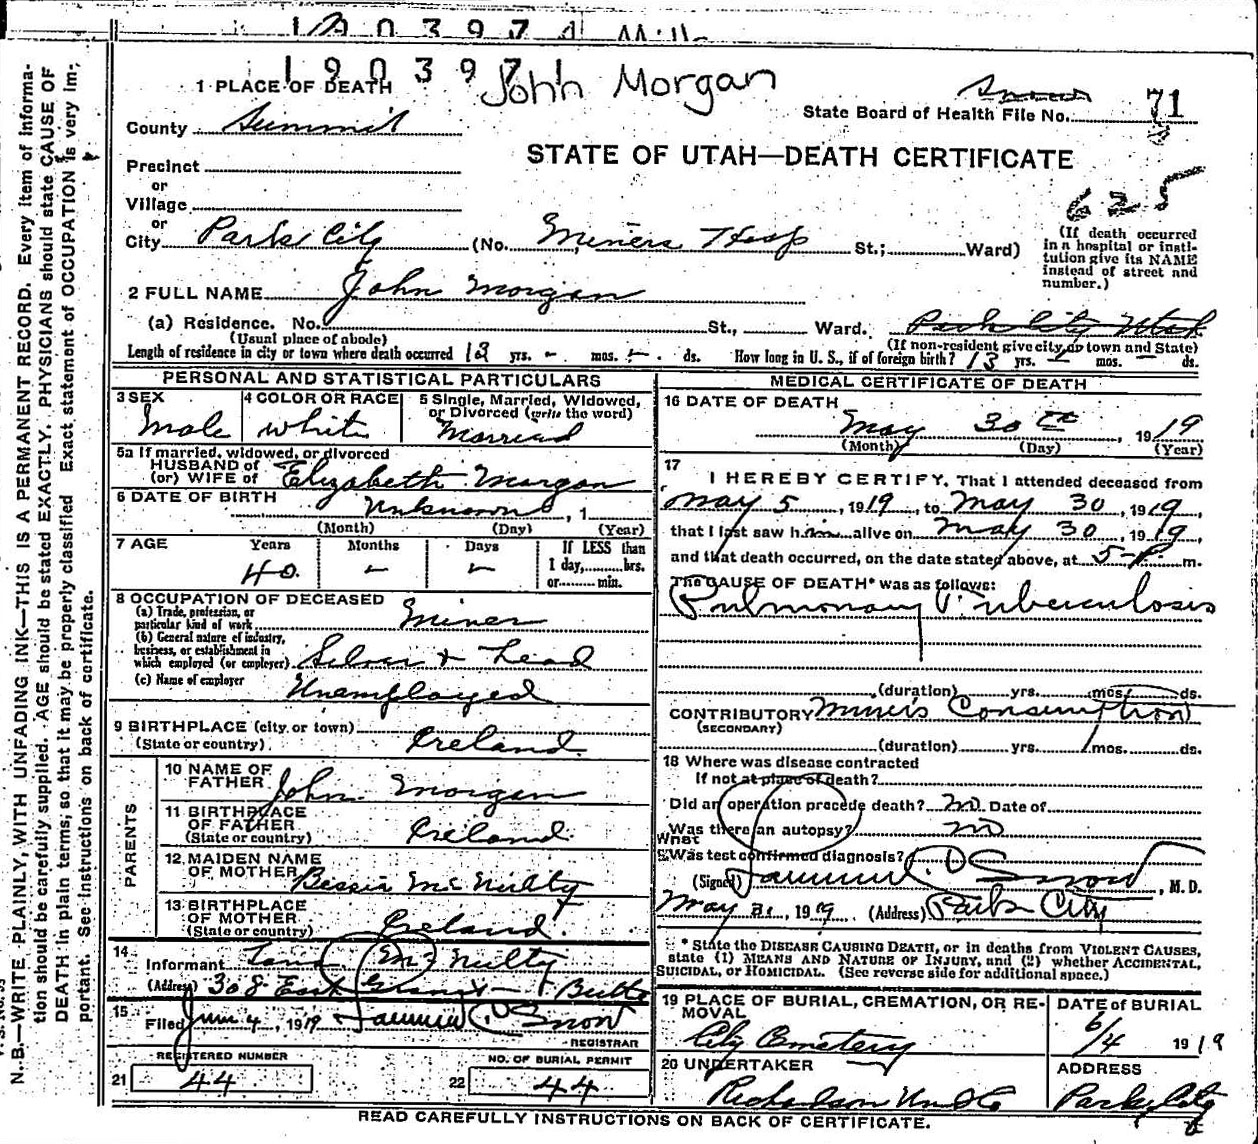 190397
190397 John Morgan
1 PLACE OF DEATH
State Board of Health File No. 71
County Summit
STATE OF UTAH—DEATH CERTIFICATE
Precinct
or
Village
625
or
City Park City (No. Miners Hosp St.; Ward)
(If death occurred in a hospital or institution give its NAME instead of street and number.)
2 FULL NAME John Morgan
(a) Residence. No. St., Ward. Park City Utah
(Usual place of abode) (If non-resident give city or town and State)
Length of residence in city or town where death occurred 13 yrs. - mos. - ds. How long in U. S., if of foreign birth? 13 yrs. - mos. - ds.
PERSONAL AND STATISTICAL PARTICULARS
3 SEX Male
4 COLOR OR RACE White
5 Single, Married, Widowed, or Divorced (write the word) Married
5a If married, widowed, or divorced
HUSBAND of
(or) WIFE of Elizabeth Morgan
6 DATE OF BIRTH Unknown, 1
(Month) (Day) (Year)
7 AGE Years Months Days If LESS than
40 - - 1 day, hrs.
or min.
8 OCCUPATION OF DECEASED
(a) Trade, profession, or
particular kind of work Miner
(b) General nature of industry,
business, or establishment in
which employed (or employer) Silver + Lead
(c) Name of employer Unemployed
9 BIRTHPLACE (city or town)
(State or country) Ireland
PARENTS
10 NAME OF
FATHER John Morgan
11 BIRTHPLACE
OF FATHER
(State or country) Ireland
12 MAIDEN NAME
OF MOTHER Bessie McNulty
13 BIRTHPLACE
OF MOTHER
(State or country) Ireland.
14
Informant McNulty
(Address) 308 East Butte
15
Filed June 4, 1919 Snow
REGISTRAR
REGISTERED NUMBER
21 44
NO. OF BURIAL PERMIT
22 44
MEDICAL CERTIFICATE OF DEATH
16 DATE OF DEATH
May 30th, 1919
(Month) (Day) (Year)
17
I HEREBY CERTIFY, That I attended deceased from
May 5, 1919, to May 30, 1919,
that I last saw him alive on May 30, 1919
and that death occurred, on the date stated above, at 5-P. m.
The CAUSE OF DEATH* was as follows:
Pulmonary Tuberculosis
(duration) yrs. mos. ds.
CONTRIBUTORY Miner's Consumption
(SECONDARY)
(duration) yrs. mos. ds.
18 Where was disease contracted
If not at place of death?
Did an operation precede death? no Date of
Was there an autopsy? no
What
Was test confirmed diagnosis?
(Signed) Snow, M. D.
May 31, 1919 (Address) Park City
* State the DISEASE CAUSING DEATH, or in deaths from VIOLENT CAUSES,
state (1) MEANS AND NATURE OF INJURY, and (2) whether ACCIDENTAL,
SUICIDAL, or HOMICIDAL. (See reverse side for additional space.)
19 PLACE OF BURIAL, CREMATION, OR REMOVAL
City Cemetery
DATE OF BURIAL
6/4 1919
20 UNDERTAKER
Richardson Und Co
ADDRESS
Park City
READ CAREFULLY INSTRUCTIONS ON BACK OF CERTIFICATE.
N. B.—WRITE PLAINLY, WITH UNFADING INK—THIS IS A PERMANENT RECORD. Every item of information should be carefully supplied. AGE should be stated EXACTLY. PHYSICIANS should state CAUSE OF DEATH in plain terms, so that it may be properly classified. Exact statement of OCCUPATION is very important. See instructions on back of certificate.